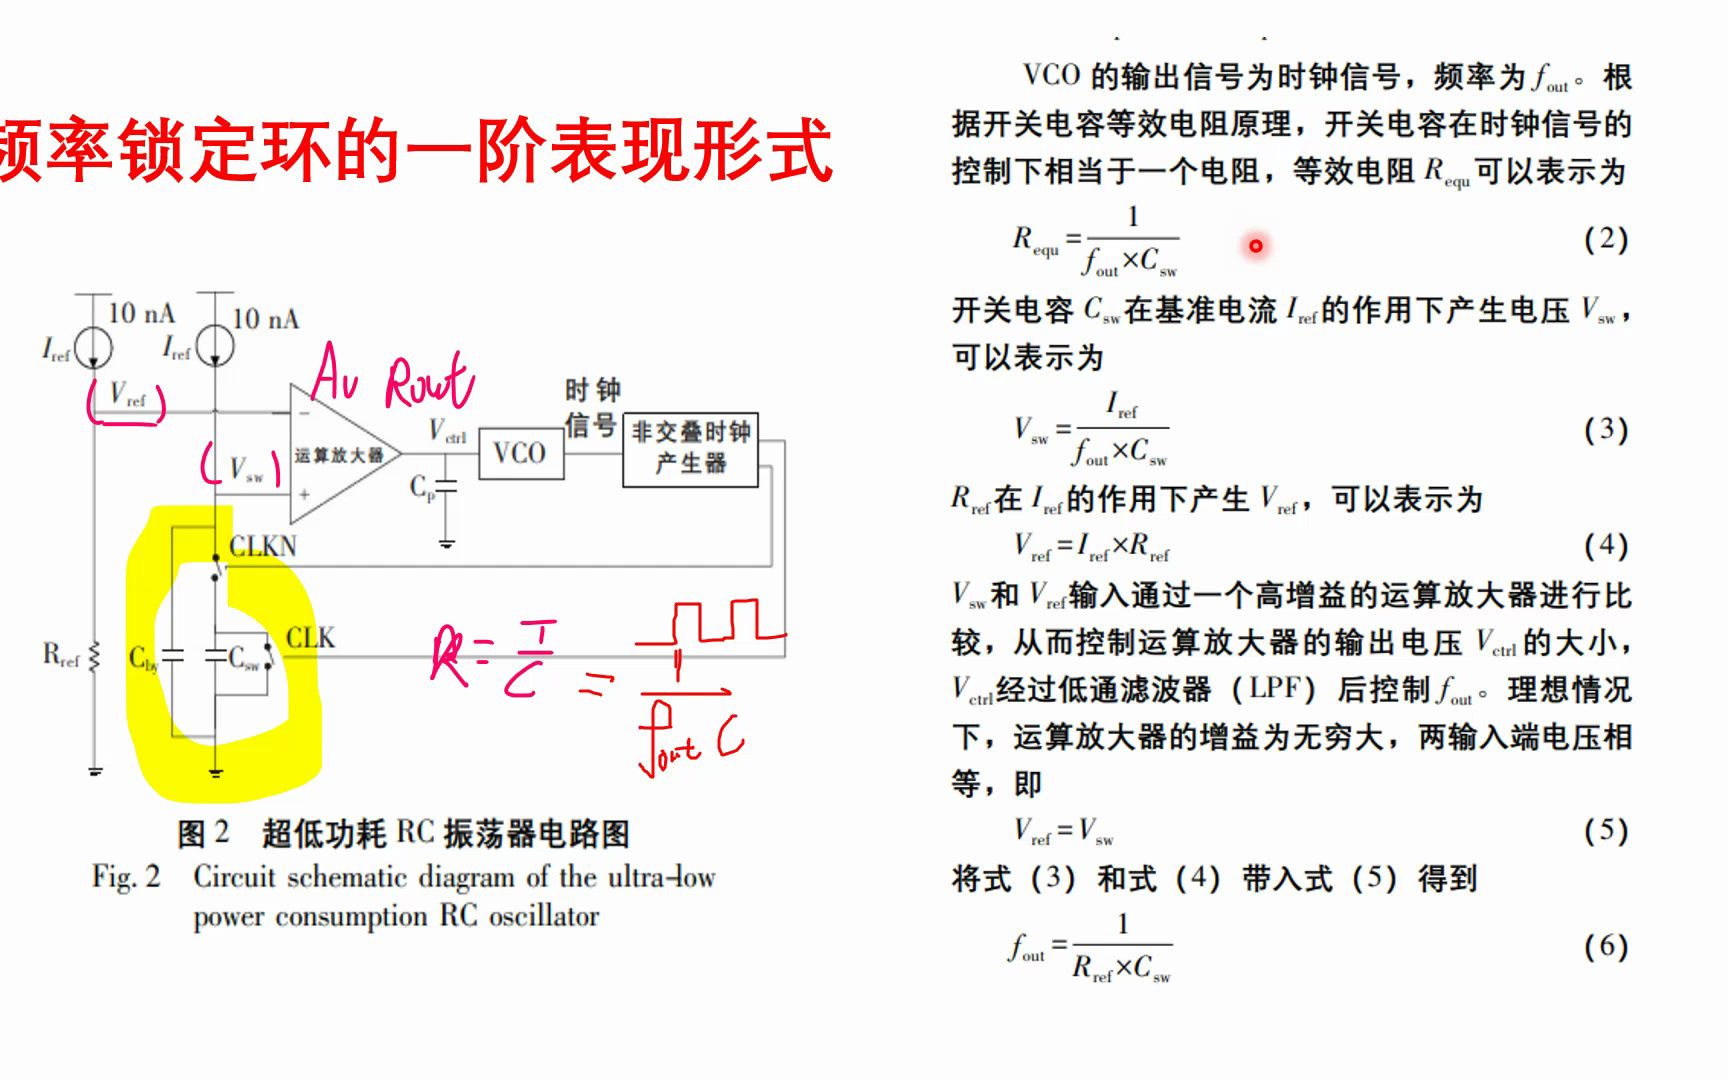 频率锁定环的一阶表现形式
10 nA
10 nA
I_ref
I_ref
V_ref
Av Rout
V_sw
运算放大器
V_ctrl
C_p
VCO
时钟
信号
非交叠时钟
产生器
CLKN
CLK
R_ref
C_by
C_sw
R = T/C = 1/(fout C)
图 2 超低功耗 RC 振荡器电路图
Fig. 2 Circuit schematic diagram of the ultra-low
power consumption RC oscillator
VCO 的输出信号为时钟信号，频率为 f_out。根
据开关电容等效电阻原理，开关电容在时钟信号的
控制下相当于一个电阻，等效电阻 R_equ 可以表示为
R_equ = 1/(f_out×C_sw) (2)
开关电容 C_sw 在基准电流 I_ref 的作用下产生电压 V_sw，
可以表示为
V_sw = I_ref/(f_out×C_sw) (3)
R_ref 在 I_ref 的作用下产生 V_ref，可以表示为
V_ref = I_ref×R_ref (4)
V_sw 和 V_ref 输入通过一个高增益的运算放大器进行比
较，从而控制运算放大器的输出电压 V_ctrl 的大小，
V_ctrl 经过低通滤波器（LPF）后控制 f_out。理想情况
下，运算放大器的增益为无穷大，两输入端电压相
等，即
V_ref = V_sw (5)
将式（3）和式（4）带入式（5）得到
f_out = 1/(R_ref×C_sw) (6)